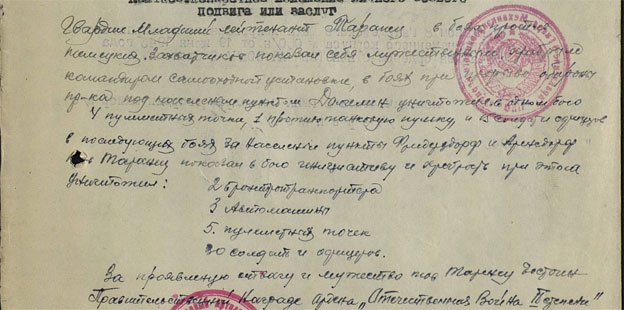 подвига или заслуг
Гвардии Младший лейтенант Таранец в боях против
немецких захватчиков показал себя мужественным
командиром самоходной установки, в боях при
пр-ка под населенным пунктом уничтожил
4 пулеметных точки, 1 противотанковую пушку и солдат и офицеров
в последующих боях за населенные пункты и
тов Таранец показал в бою инициативу и храбрость при этом
уничтожил:
2 бронетранспортера
3 Автомашины
5. пулеметных точек
30 солдат и офицеров.
За проявленую отвагу и мужество тов Таранец достоин
Правительственной Награде ордена „Отечественная Война II степени"